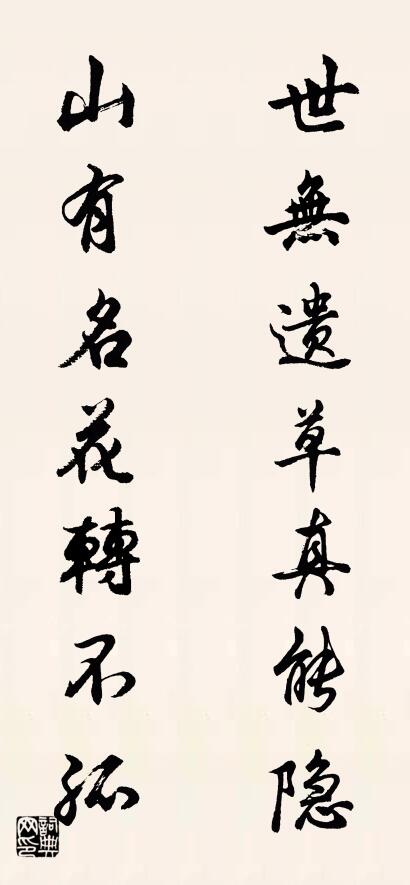 世無遺草真能隐
山有名花轉不孤
詞典网印